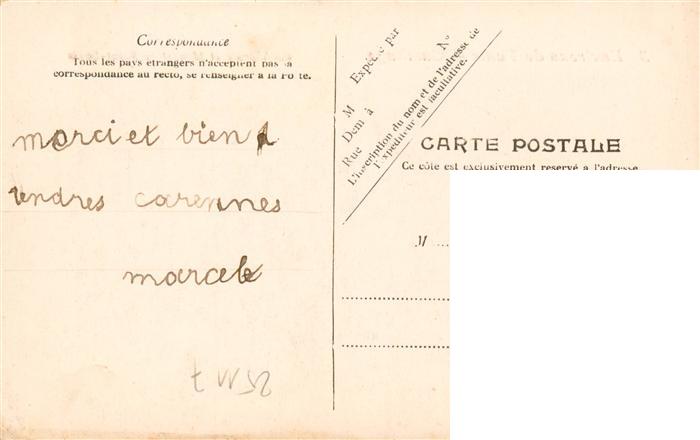 Correspondance
Tous les pays étrangers n'acceptent pas la
correspondance au recto, se renseigner à la Poste.
merci et bien
tendres caresses
marcele
Expédiée par
N°
M
Dem à
Rue
L'inscription du nom et de l'adresse de
l'Expéditeur est facultative.
CARTE POSTALE
Ce côté est exclusivement réservé à l'adresse
M